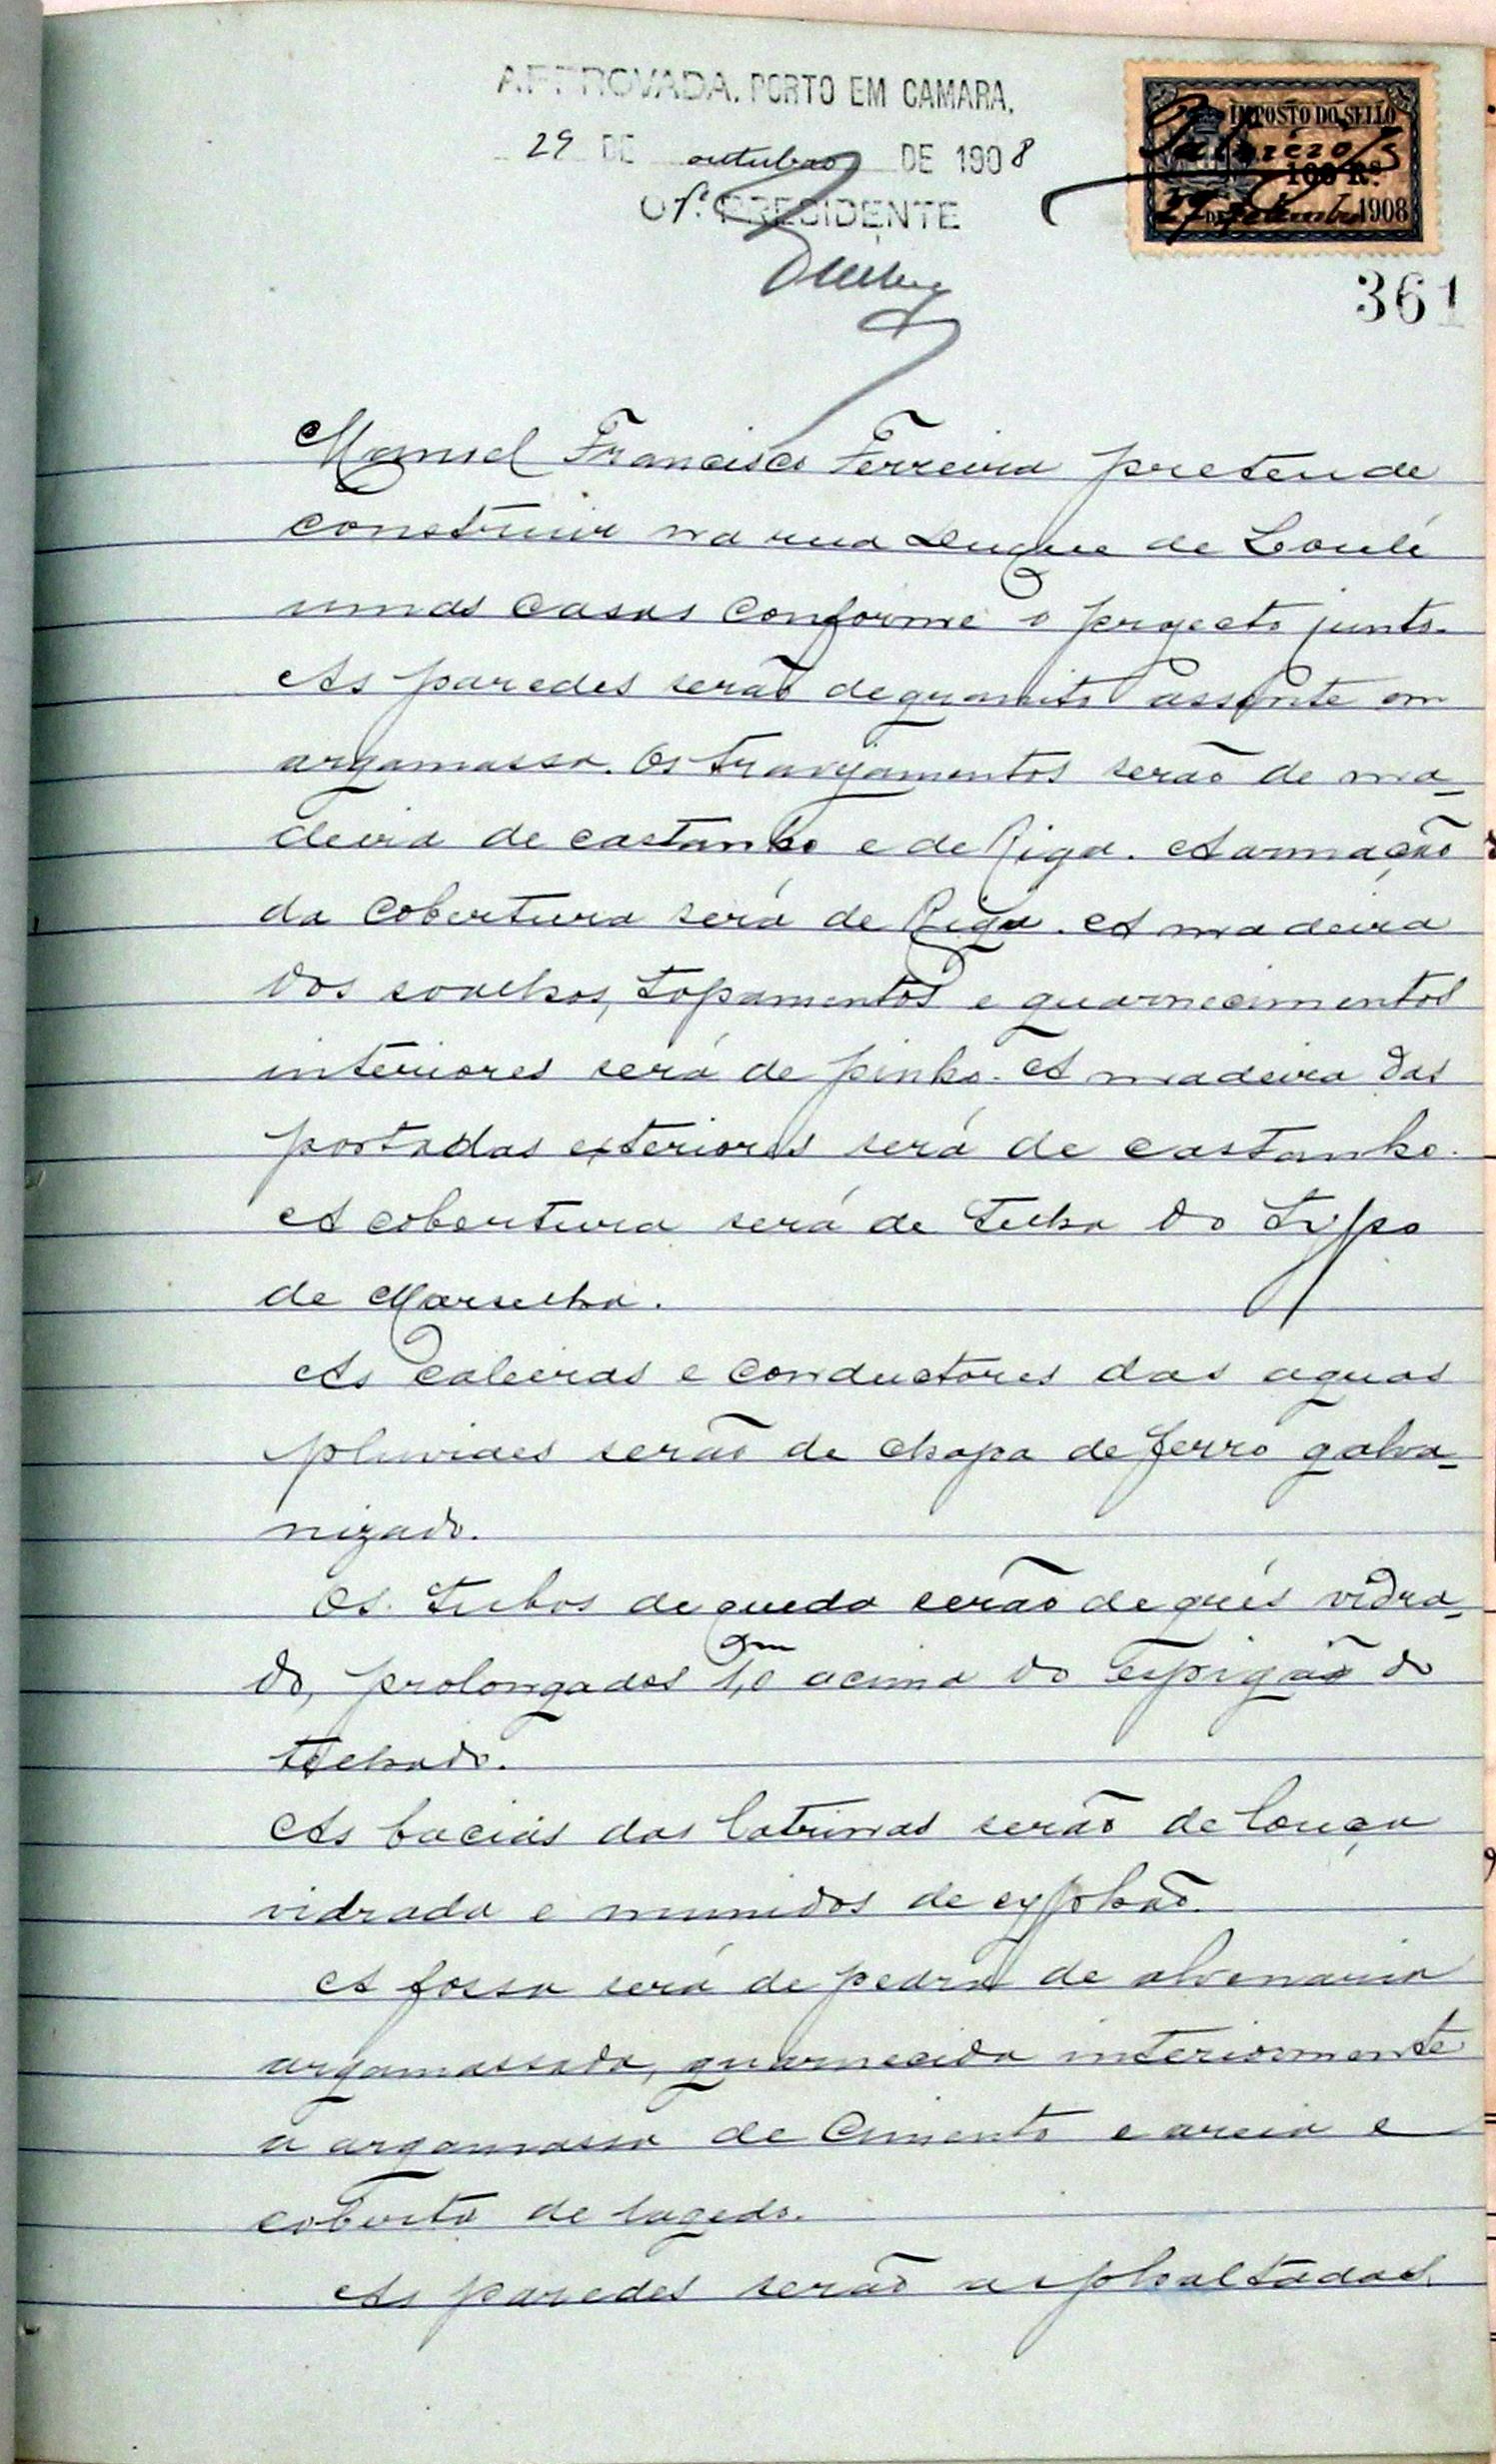 APPROVADA. PORTO EM CAMARA.
29 DE outubro DE 1908
O PRESIDENTE
IMPOSTO DO SELLO
100 Rs.
29 DE Setembro 1908
361
Manuel Francisco Ferreira pretende
construir na rua Duque de Loulé
umas casas conforme o progecto junto.
As paredes serão de granito assente em
argamassa. Os travejamentos serão de ma-
deira de castanho e de Riga. A armação
da cobertura será de Riga. A madeira
dos soalhos, tapamentos e guarnecimentos
interiores será de pinho. A madeira das
portadas exteriores será de castanho.
A cobertura será de telha do typo
de Marselha.
As caleiras e conductores das aguas
pluviaes serão de chapa de ferro galva-
nizado.
Os tubos de queda serão de grés vidra-
do, prolongados 1,0m acima do espigão do
telhado.
As bacias das latrinas serão de louça
vidrada e munidos de syphão.
A fossa será de pedra de alvenaria
argamassada, guarnecida interiormente
a argamassa de cimento e areia e
coberta de lagedo.
As paredes serão asphaltadas